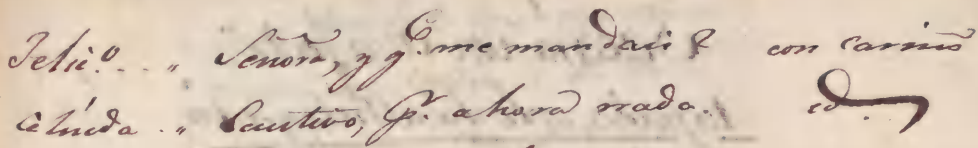 Felic.º .. „ Señora, y q.e me mandais? con cariño
Celinda .. „ Cautivo, p.r ahora nada. id.